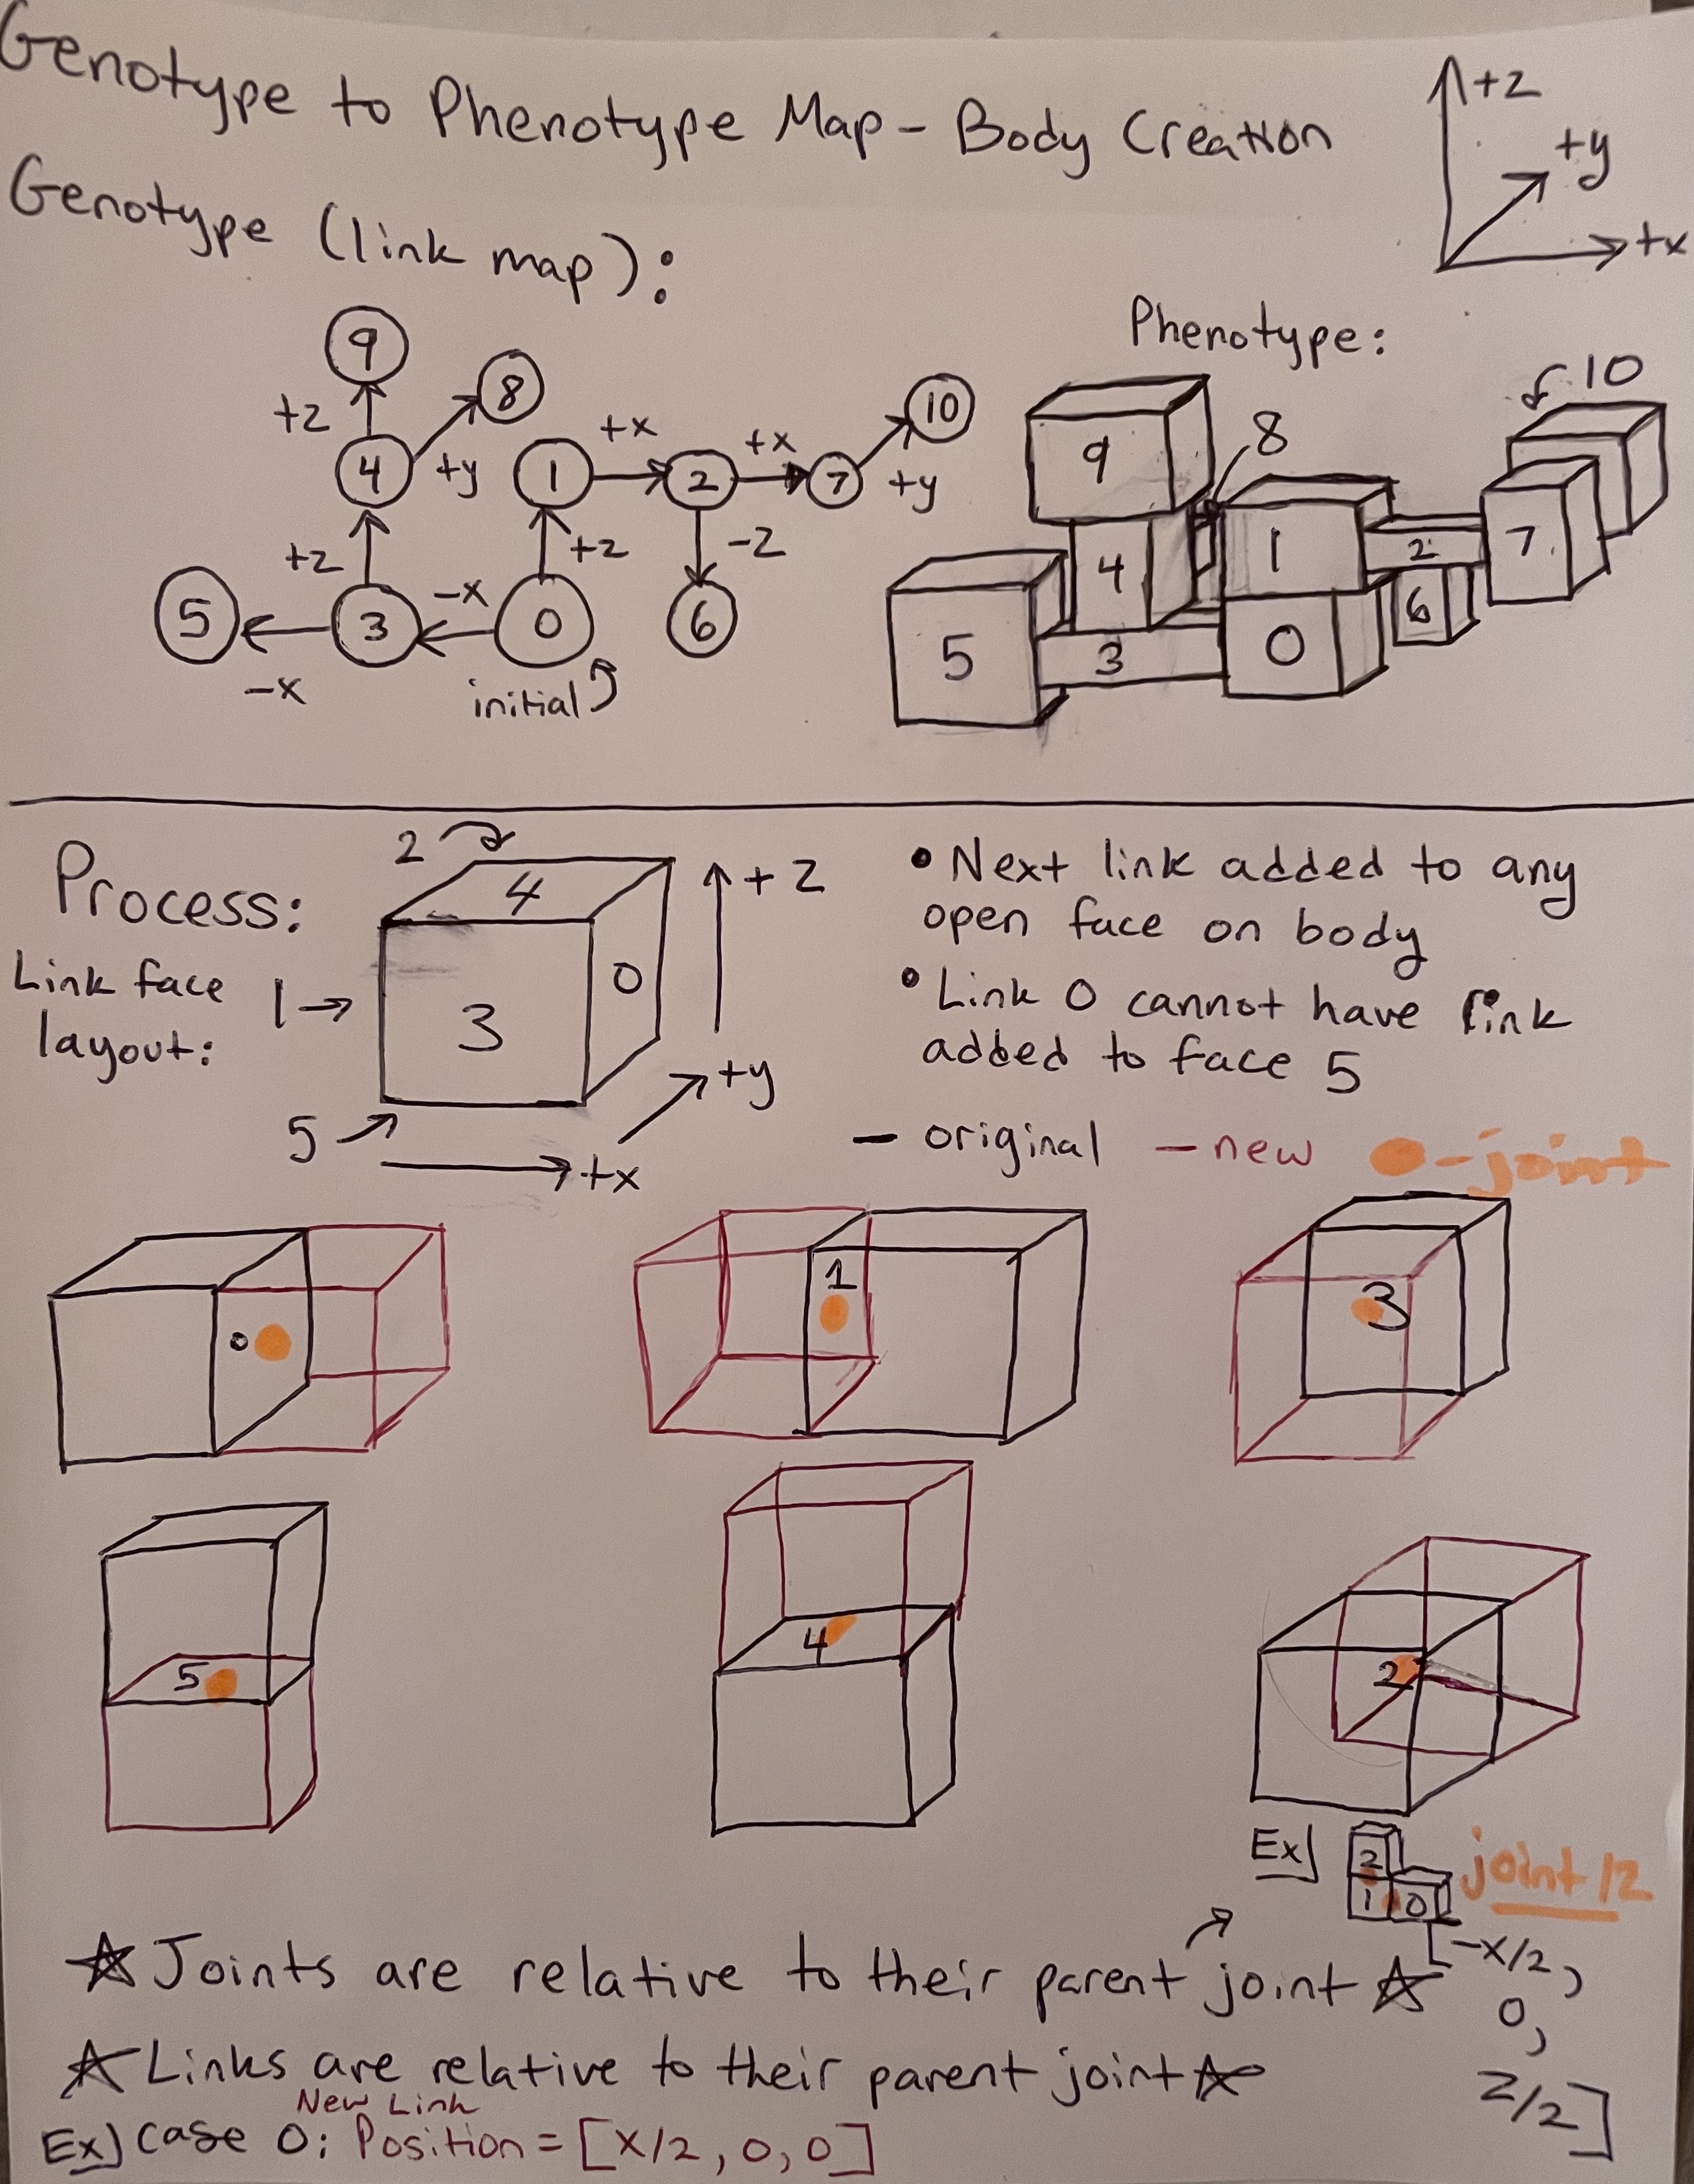 Genotype to Phenotype Map - Body Creation
+z
+y
+x
Genotype (link map):
Phenotype:
9
8
+z
+y
4
1
+x
2
+x
7
10
+y
+z
+z
-z
5
3
-x
0
6
-x
initial
9
8
10
4
1
2
7
5
3
0
6
Process:
2
4
+z
Link face
layout:
1
3
0
+y
5
+x
• Next link added to any
open face on body
• Link 0 cannot have link
added to face 5
- original - new - joint
0
1
3
5
4
2
Ex]
2
1 0
joint 12
[-x/2,
0,
z/2]
☆ Joints are relative to their parent joint ☆
☆ Links are relative to their parent joint ☆
New Link
Ex] case 0: Position = [x/2, 0, 0]